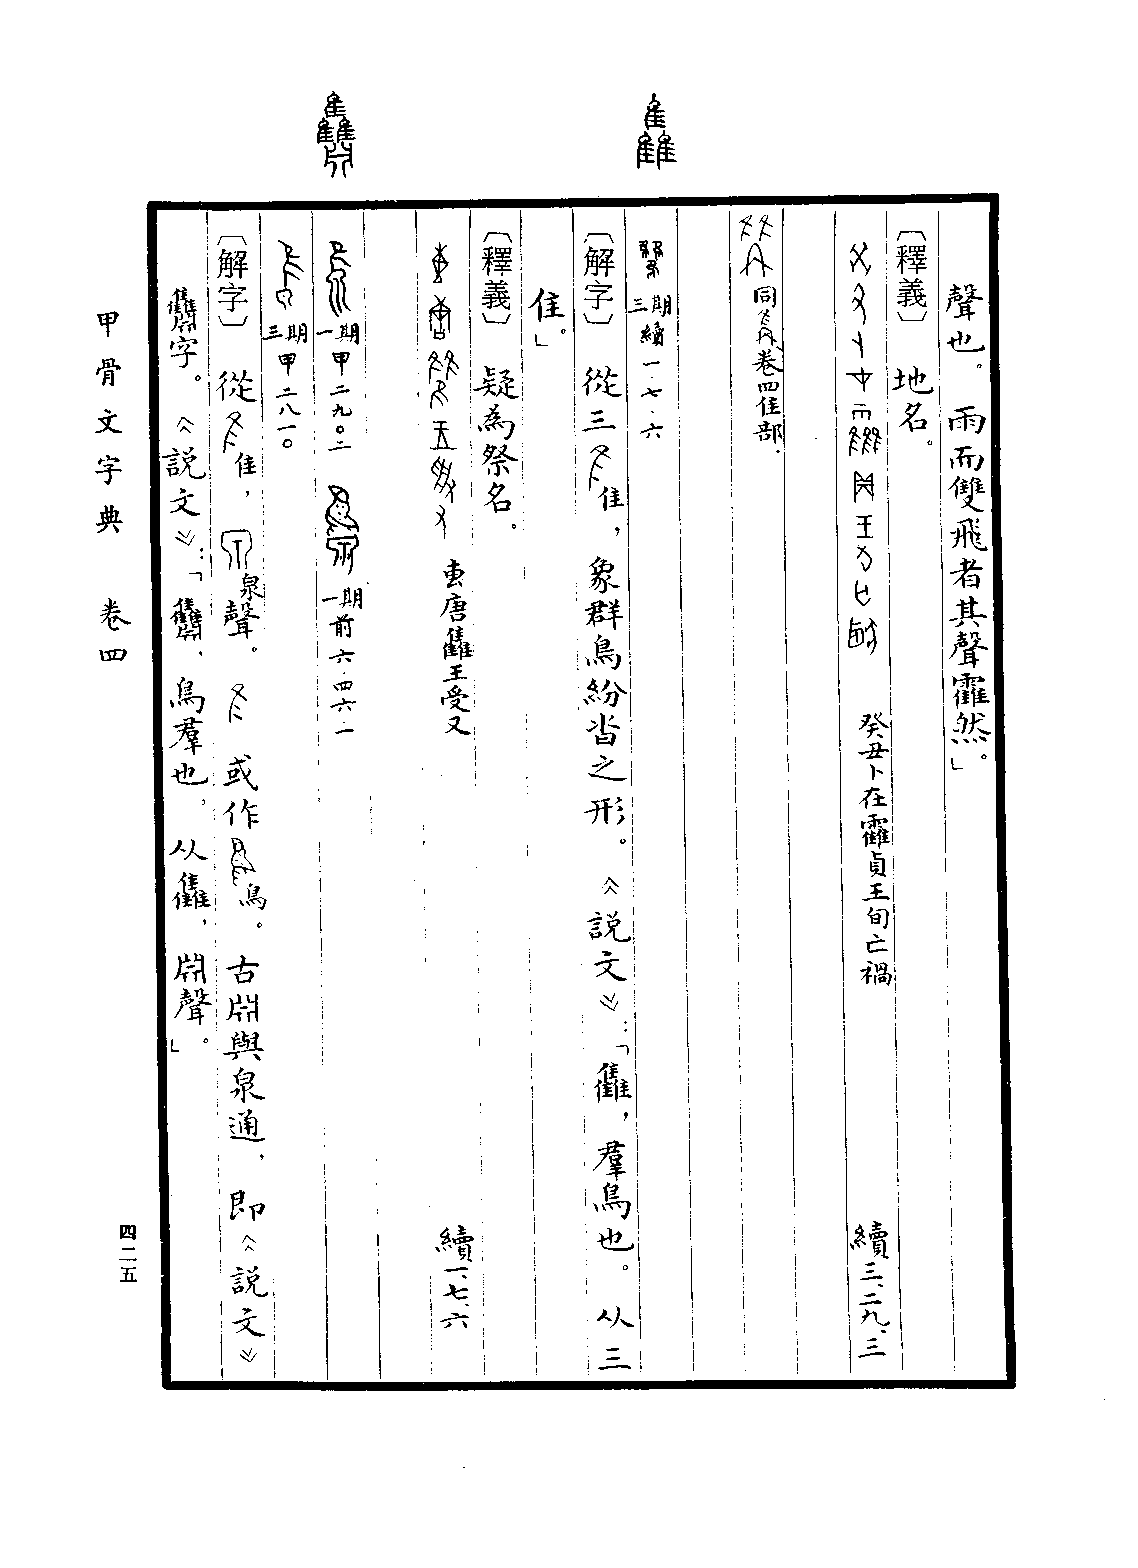 聲也。雨而雙飛者其聲靃然。」
〔釋義〕地名。
癸丑卜在靃貞王旬亡禍 續三、二九、三
同 卷四隹部.
雥
三期續一·七·六
〔解字〕從三隹，象群鳥紛沓之形。《說文》：「雥，羣鳥也。从三
隹。」
〔釋義〕疑為祭名。
叀唐雥王受又 續一、七、六
𪚁
一期甲二九〇二 一期前六·四六·一
三期甲二八一〇
〔解字〕從隹，泉聲。或作鳥。古𣶒與泉通，即《說文》
字。《說文》：「鳥羣也。从雥，𣶒聲。」
甲骨文字典 卷四
四二五